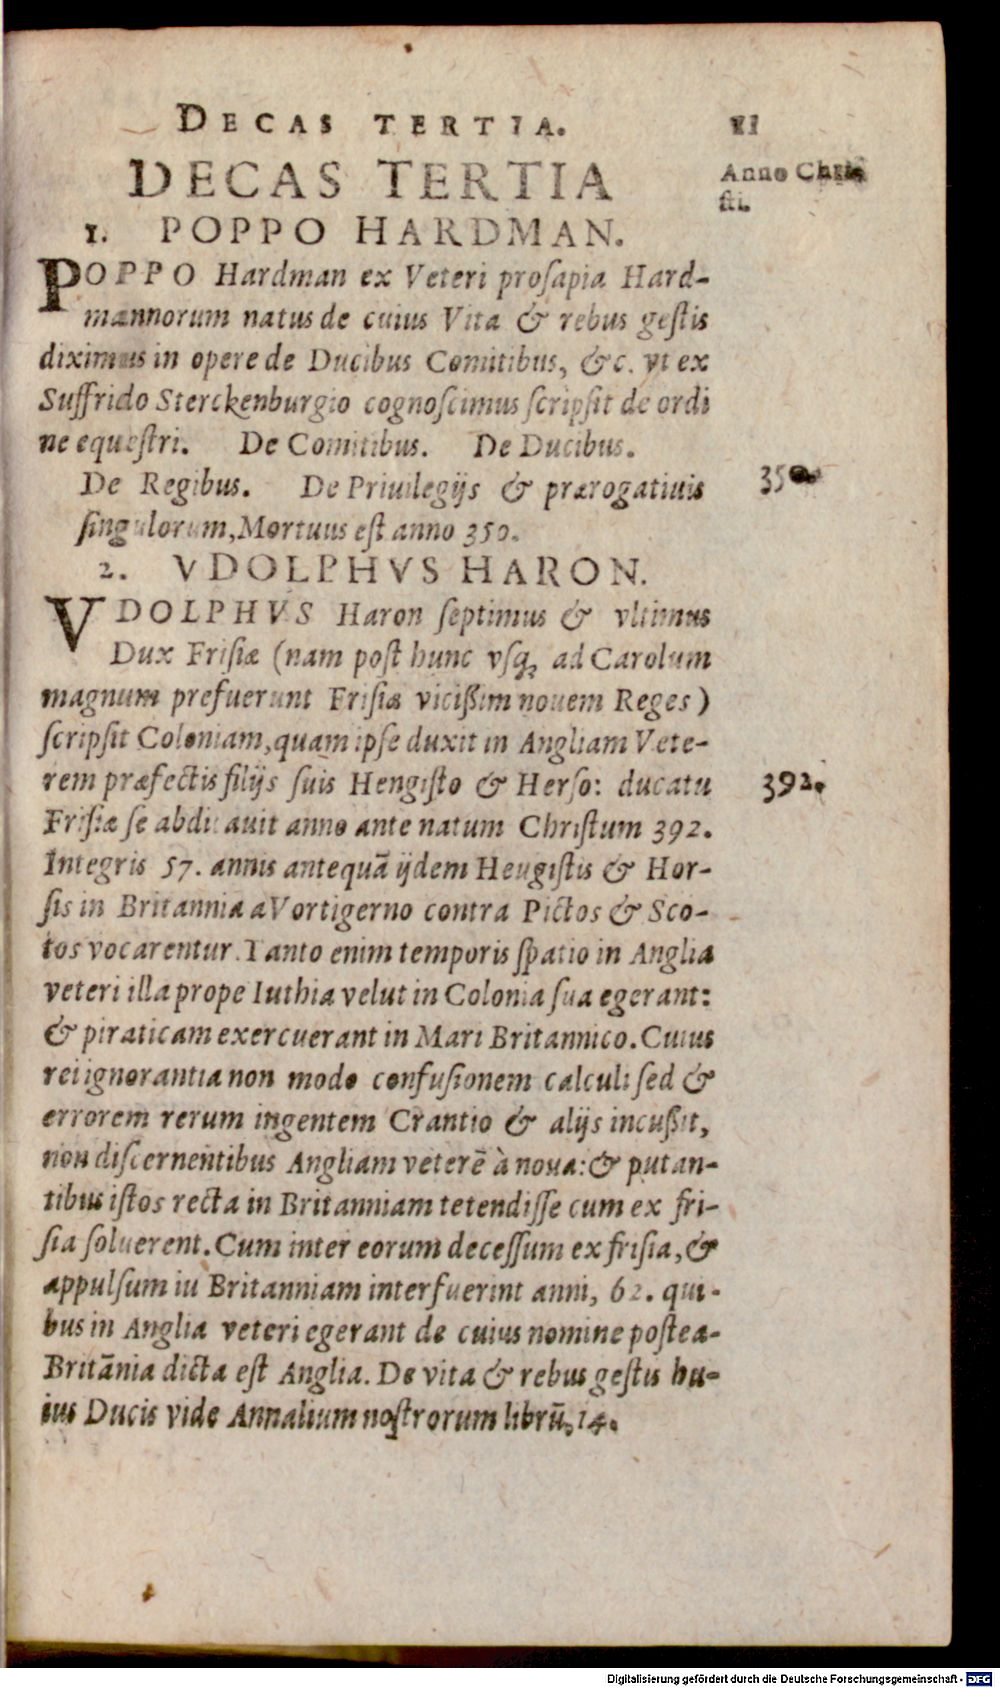 DECAS TERTIA. 11
DECAS TERTIA
Anno Chri
sti.
1. POPPO HARDMAN.
POPPO Hardman ex Veteri prosapia Hard-
mannorum natus de cuius Vita & rebus gestis
diximus in opere de Ducibus Comitibus, &c. vt ex
Suffrido Sterckenburgio cognoscimus scripsit de ordi
ne equestri. De Comitibus. De Ducibus.
De Regibus. De Priuilegijs & prærogatiuis
singulorum, Mortuus est anno 350.
350.
2. VDOLPHVS HARON.
VDOLPHVS Haron septimus & vltimus
Dux Frisiæ (nam post hunc vsq; ad Carolum
magnum prefuerunt Frisiæ vicißim nouem Reges)
scripsit Coloniam, quam ipse duxit in Angliam Vete-
rem præfectis filijs suis Hengisto & Herso: ducatu
392.
Frisiæ se abdicauit anno ante natum Christum 392.
Integris 57. annis antequā ijdem Heugistis & Hor-
sis in Britannia a Vortigerno contra Pictos & Sco-
tos vocarentur. Tanto enim temporis spatio in Anglia
veteri illa prope Iuthia velut in Colonia sua egerant:
& piraticam exercuerant in Mari Britannico. Cuius
rei ignorantia non modo confusionem calculi sed &
errorem rerum ingentem Crantio & alijs incußit,
non discernentibus Angliam veterē à noua: & putan-
tibus istos recta in Britanniam tetendisse cum ex fri-
sia soluerent. Cum inter eorum decessum ex frisia, &
appulsum iu Britanniam interfuerint anni, 62. qui-
bus in Anglia veteri egerant de cuius nomine postea-
Britānia dicta est Anglia. De vita & rebus gestis hu-
ius Ducis vide Annalium nostrorum librū, 14.
Digitalisierung gefördert durch die Deutsche Forschungsgemeinschaft - DFG